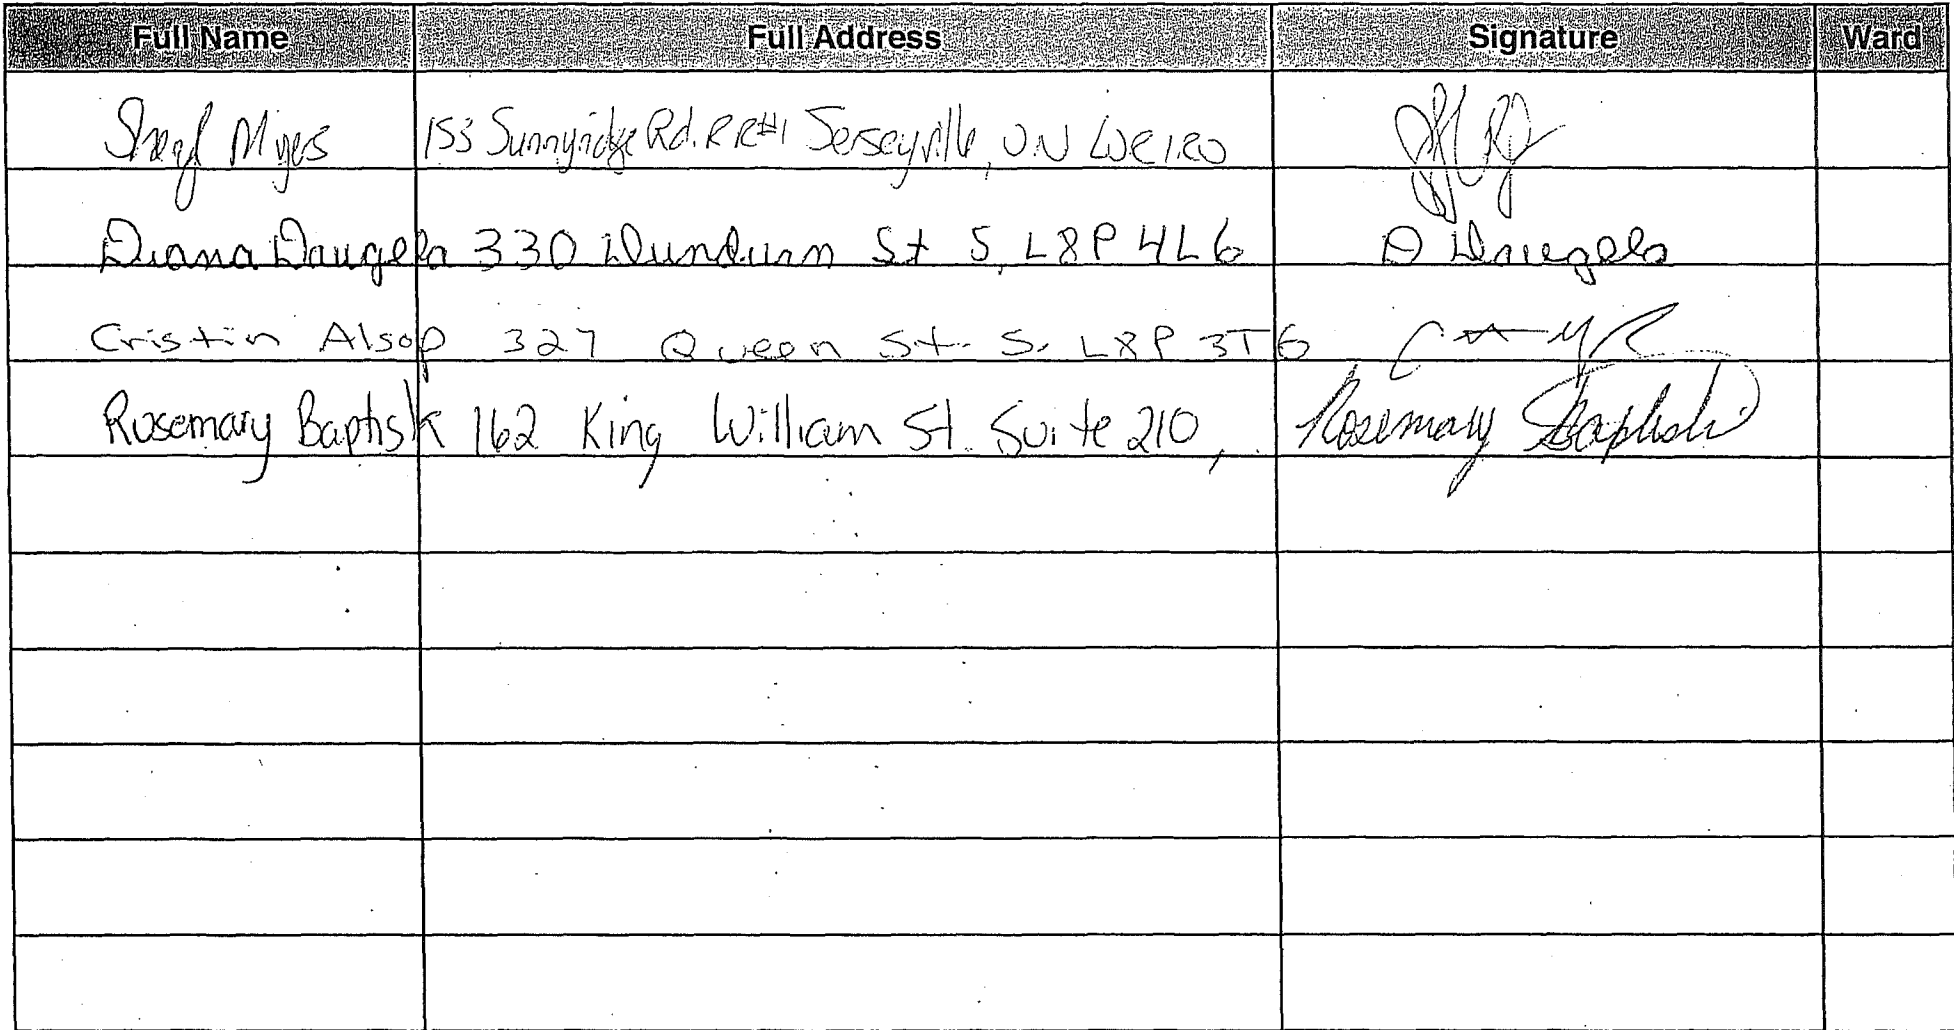 Full Name Full Address Signature Ward
Sheryl Myers 153 Sunnyridge Rd. RR#1 Jerseyville, ON L0R 1R0
Diana Daugela 330 Dundurn St S, L8P 4L6 D Daugela
Cristin Alsop 327 Queen St. S. L8P 3T6
Rosemary Baptiste 162 King William St. Suite 210, Rosemary Baptiste